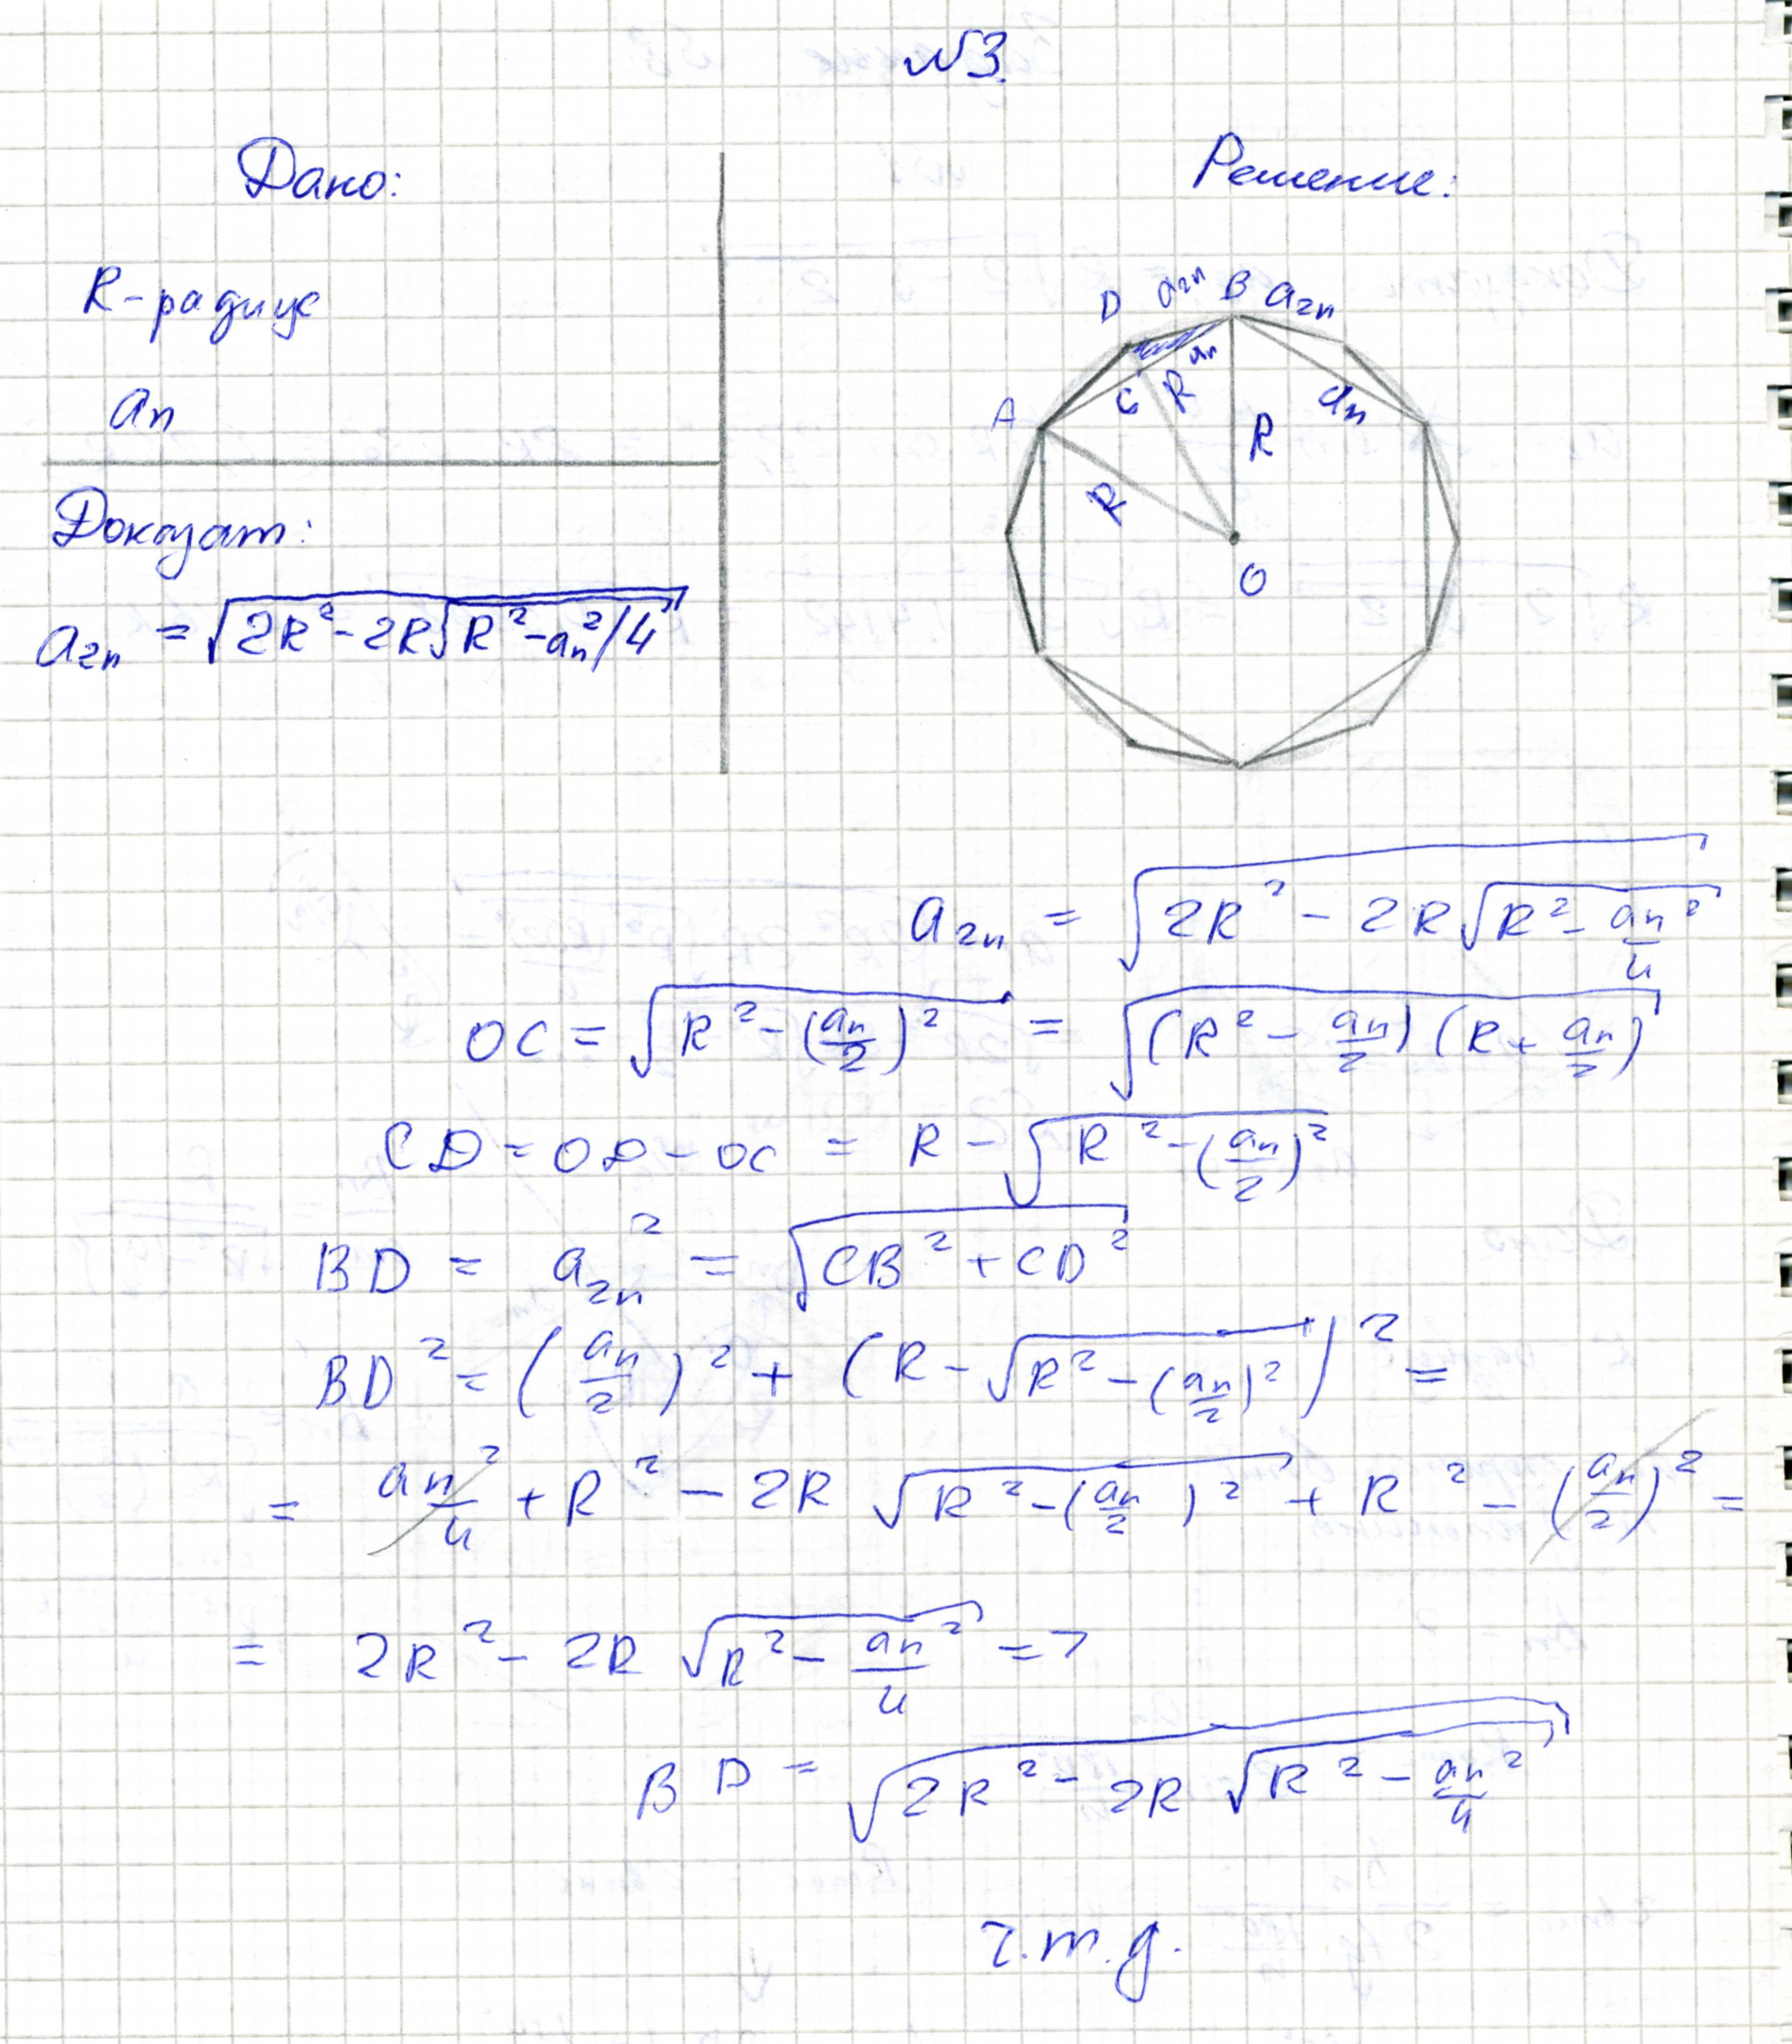 №3.
Дано:
R-радиус
an
Доказат:
a₂ₙ = √(2R² - 2R√(R² - aₙ²/4))
Решение:
D a₂ₙ B a₂ₙ
aₙ
A C R aₙ
R
R
O
a₂ₙ = √(2R² - 2R√(R² - aₙ²/4))
OC = √(R² - (aₙ/2)²) = √((R² - aₙ/2)(R + aₙ/2))
CD = OD - OC = R - √(R² - (aₙ/2)²)
BD = a₂ₙ² = √(CB² + CD²)
BD² = (aₙ/2)² + (R - √(R² - (aₙ/2)²))² =
= aₙ²/4 + R² - 2R √(R² - (aₙ/2)²) + R² - (aₙ/2)² =
= 2R² - 2R √(R² - aₙ²/4) =>
BD = √(2R² - 2R √(R² - aₙ²/4))
ч.т.д.